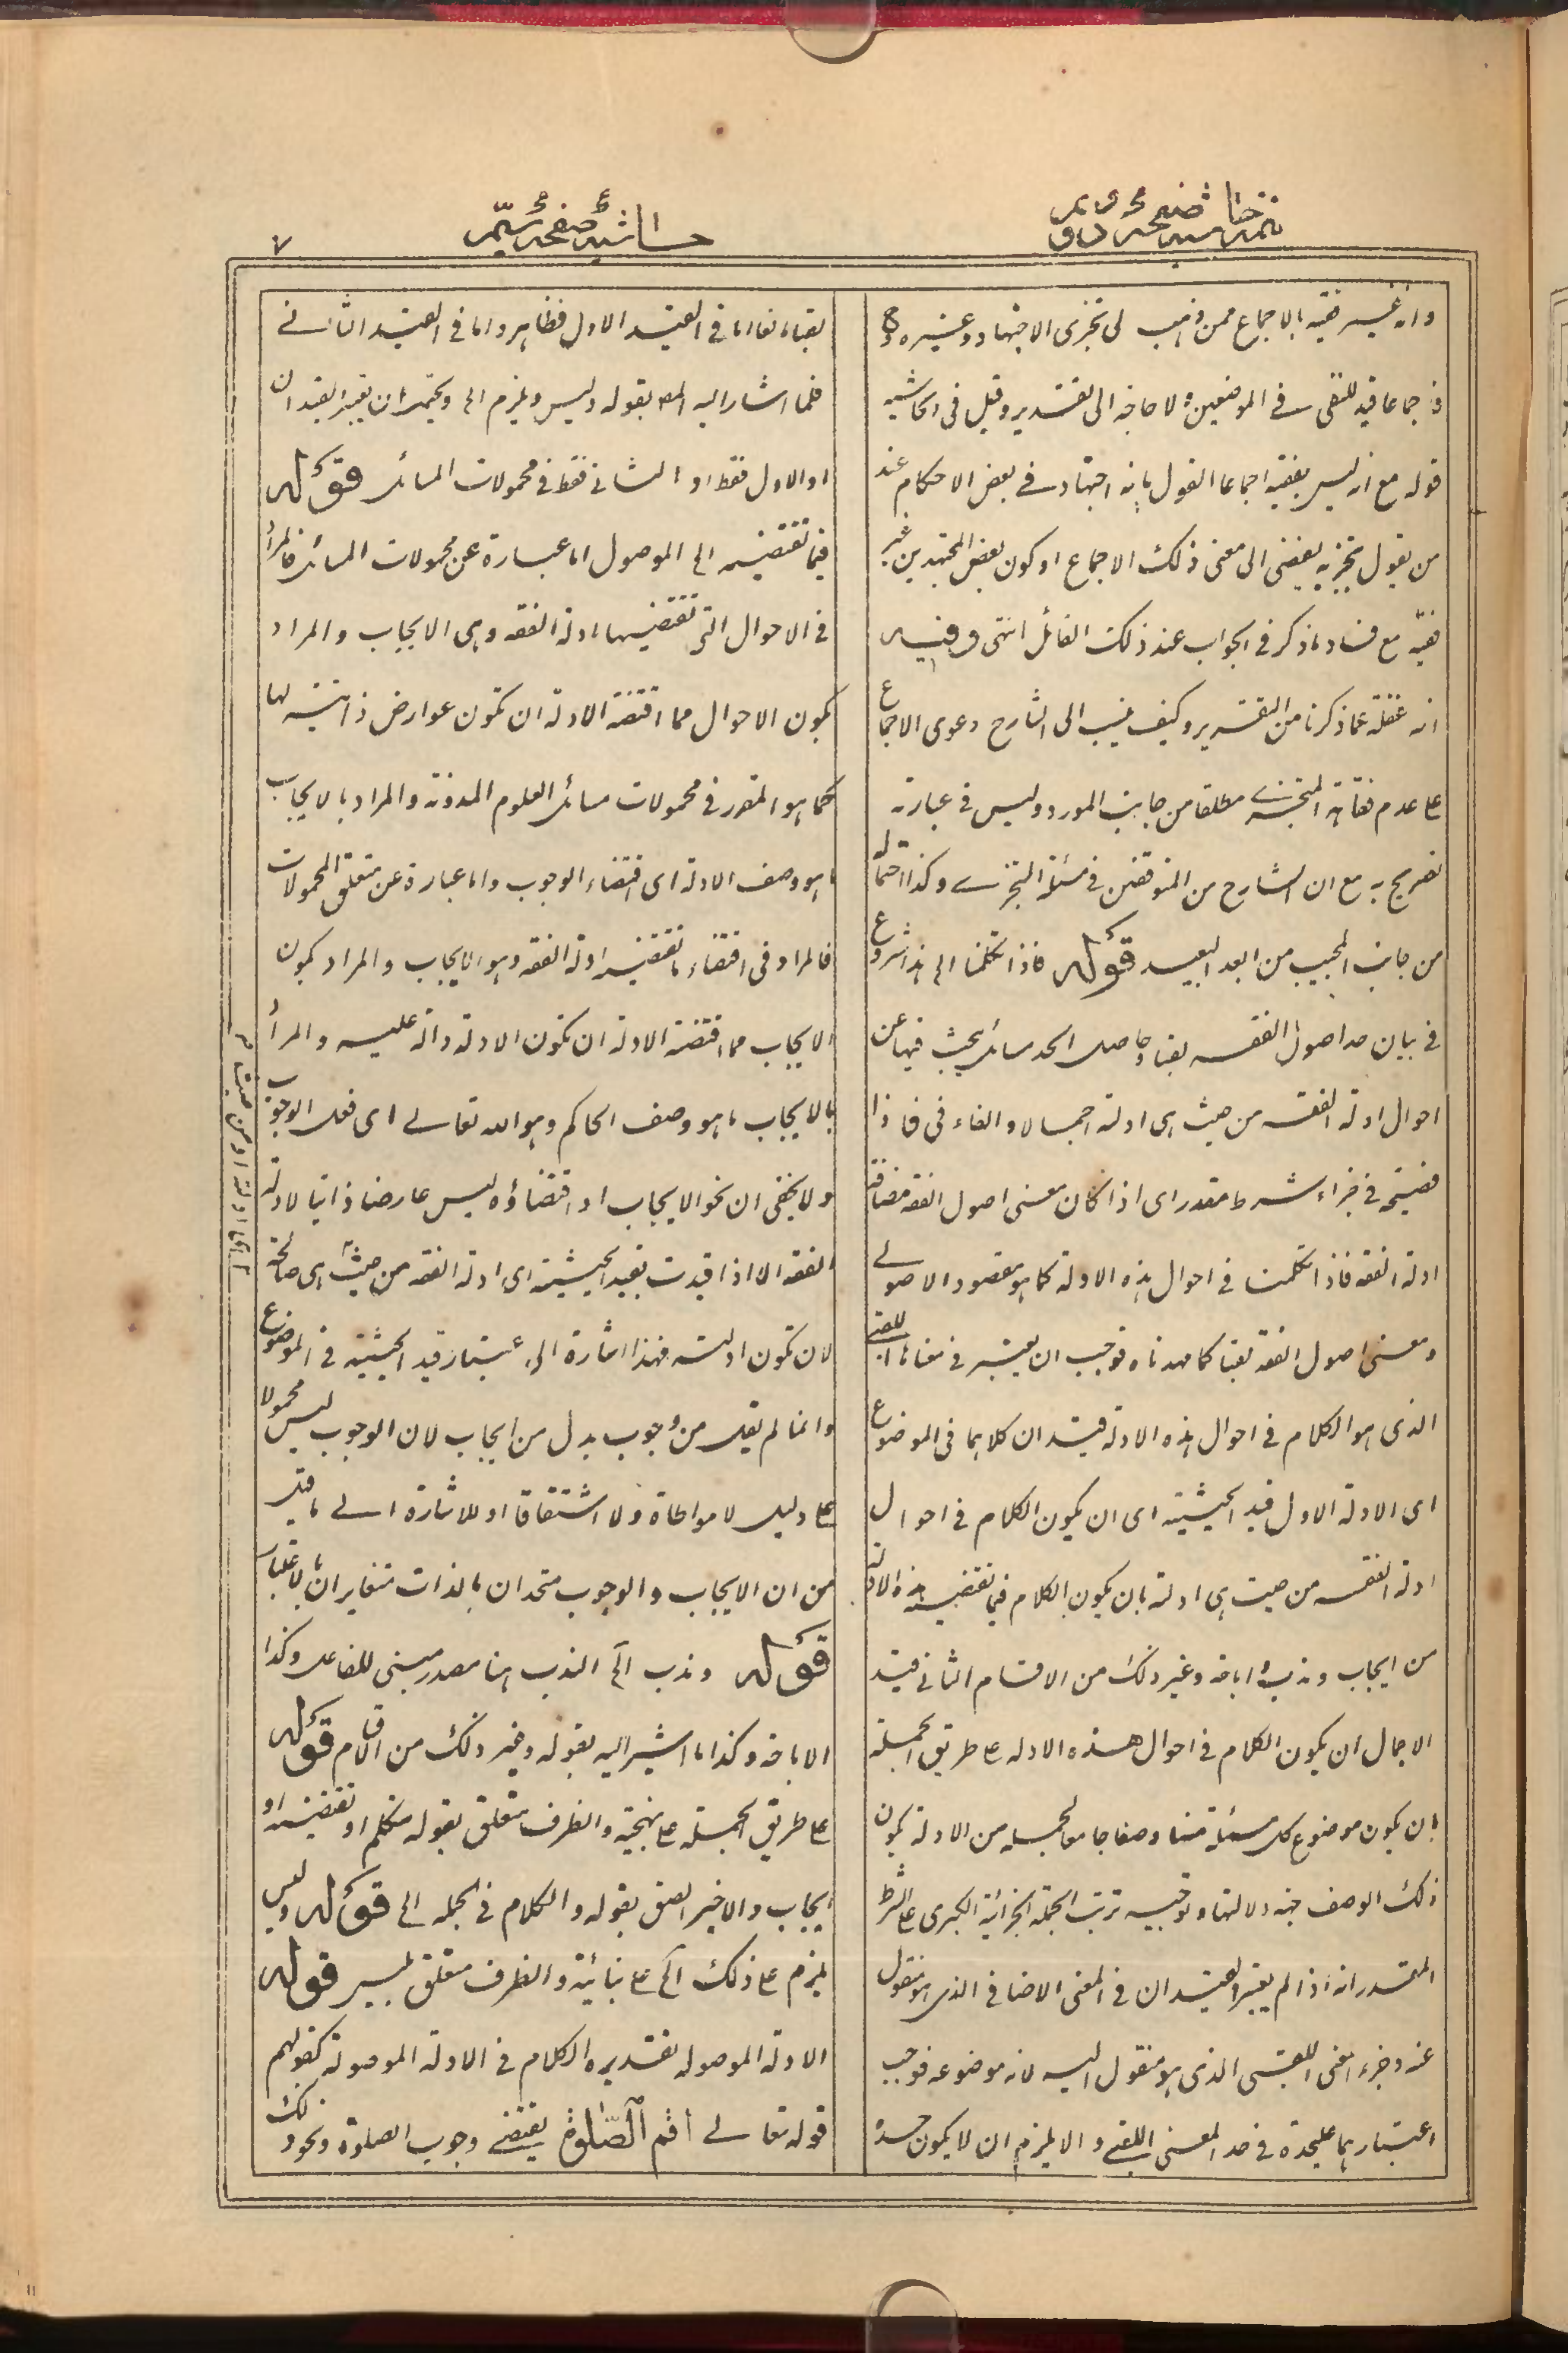 تتمة حاشية صفحه دويم
حاشية صفحه سيم
٧
وانه غير فقيه بالاجماع ممن ذهب الى تجزى الاجتهاد وغيره وح
فاجماعا قيد للنفى فى الموضعين ولا حاجة الى تقدير وقيل فى الحاشية
قوله مع انه ليس بفقيه اجماعا القول بانه اجتهاد فى بعض الاحكام عند
من يقول بتجزيه يفضى الى معنى ذلك الاجماع او كون بعض المجتهدين غير
فقيه مع فساد ما ذكر فى الجواب عند ذلك القائل انتهى وفيه
انه غفلة عما ذكرنا من التقرير وكيف ينسب الى الشارح دعوى الاجماع
على عدم فقاهة المتجزى مطلقا من جانب المورد وليس فى عبارته
تصريح به مع ان الشارح من المتوقفين فى مسئلة التجزى وكذا احتماله
من جانب المجيب من ابعد البعيد قوله فاذا تكلمنا الى هذا شروع
فى بيان حد اصول الفقه لقبا وحاصل الحد مسائل يبحث فيها عن
احوال ادلة الفقه من حيث هى ادلة اجمالا والفاء فى فاذا
فصيحة فى جزاء شرط مقدر اى اذا كان معنى اصول الفقه مضافا
ادلة الفقه فاذا تكلمت فى احوال هذه الادلة كما هو مقصود الاصولى
ومعنى اصول الفقه لقبا كما مهدناه فوجب ان يعتبر فى معناها اللقبى
الذى هو الكلام فى احوال هذه الادلة قيدان كلاهما فى الموضوع
اى الادلة الاول قيد الحيثية اى ان يكون الكلام فى احوال
ادلة الفقه من حيث هى ادلة بان يكون الكلام فيما تقتضيه هذه الادلة
من ايجاب وندب واباحة وغير ذلك من الاقسام الثانى قيد
الاجمال ان يكون الكلام فى احوال هذه الادلة على طريق الجملة
بان يكون موضوع كل مسئلة منها وصفا جامعا لجملة من الادلة يكون
ذلك الوصف جهة دلالتها وتوجيه ترتب الجملة الجزائية الكبرى على الشرط
المقدر انه اذا لم يعتبر القيدان فى المعنى الاضافى الذى هو منقول
عنه وجزء المعنى اللقبى الذى هو منقول اليه لانه موضوعه فوجب
اعتبارهما عليحدة فى حد المعنى اللقبى والا يلزم ان لا يكون حده
لقبا مانعا اما فى القيد الاول فظاهر واما فى القيد الثانى
فلما اشار اليه المص بقوله وليس ويلزم الى ويحتمل ان يعتبر القيدان
او الاول فقط او الثانى فقط فى محمولات المسائل قوله
فيما تقتضيه الى الموصول اما عبارة عن محمولات المسائل فالمراد
فى الاحوال التى تقتضيها ادلة الفقه وهى الايجاب والمراد
بكون الاحوال مما اقتضته الادلة ان تكون عوارض ذاتية لها
كما هو المقرر فى محمولات مسائل العلوم المدونة والمراد بالايجاب
ما هو وصف الادلة اى اقتضاء الوجوب واما عبارة عن متعلق المحمولات
فالمراد فى اقتضاء ما تقتضيه ادلة الفقه وهو الايجاب والمراد بكون
الايجاب مما اقتضته الادلة ان تكون الادلة دالة عليه والمراد
بالايجاب ما هو وصف الحاكم وهو الله تعالى اى فعل الوجوب
ولا يخفى ان نحو الايجاب او اقتضاؤه ليس عارضا ذاتيا لادلة
الفقه الا اذا قيدت بقيد الحيثية اى ادلة الفقه من حيث هى صالحة
لان تكون ادلة فهذا اشارة الى اعتبار قيد الحيثية فى الموضوع
وانما لم يقل من وجوب بدل من ايجاب لان الوجوب ليس محمولا
على دليل لا مواطاة ولا اشتقاقا او للاشارة الى ما قيل
من ان الايجاب والوجوب متحدان بالذات متغايران بالاعتبار
قوله وندب الخ الندب هنا مصدر مبنى للفاعل وكذا
الاباحة وكذا ما اشير اليه بقوله وغير ذلك من اقسام قوله
على طريق الجملة على نهجية والظرف متعلق بقوله متكلم او تقتضيه او
ايجاب والاخير الصق بقوله والكلام فى الجملة الى قوله وليس
يلزم على ذلك الخ على بنائية والظرف متعلق بليس قوله
الادلة الموصولة تقديره الكلام فى الادلة الموصولة كقولهم
قوله تعالى اقم الصلوة يقتضى وجوب الصلوة ونحو ذلك